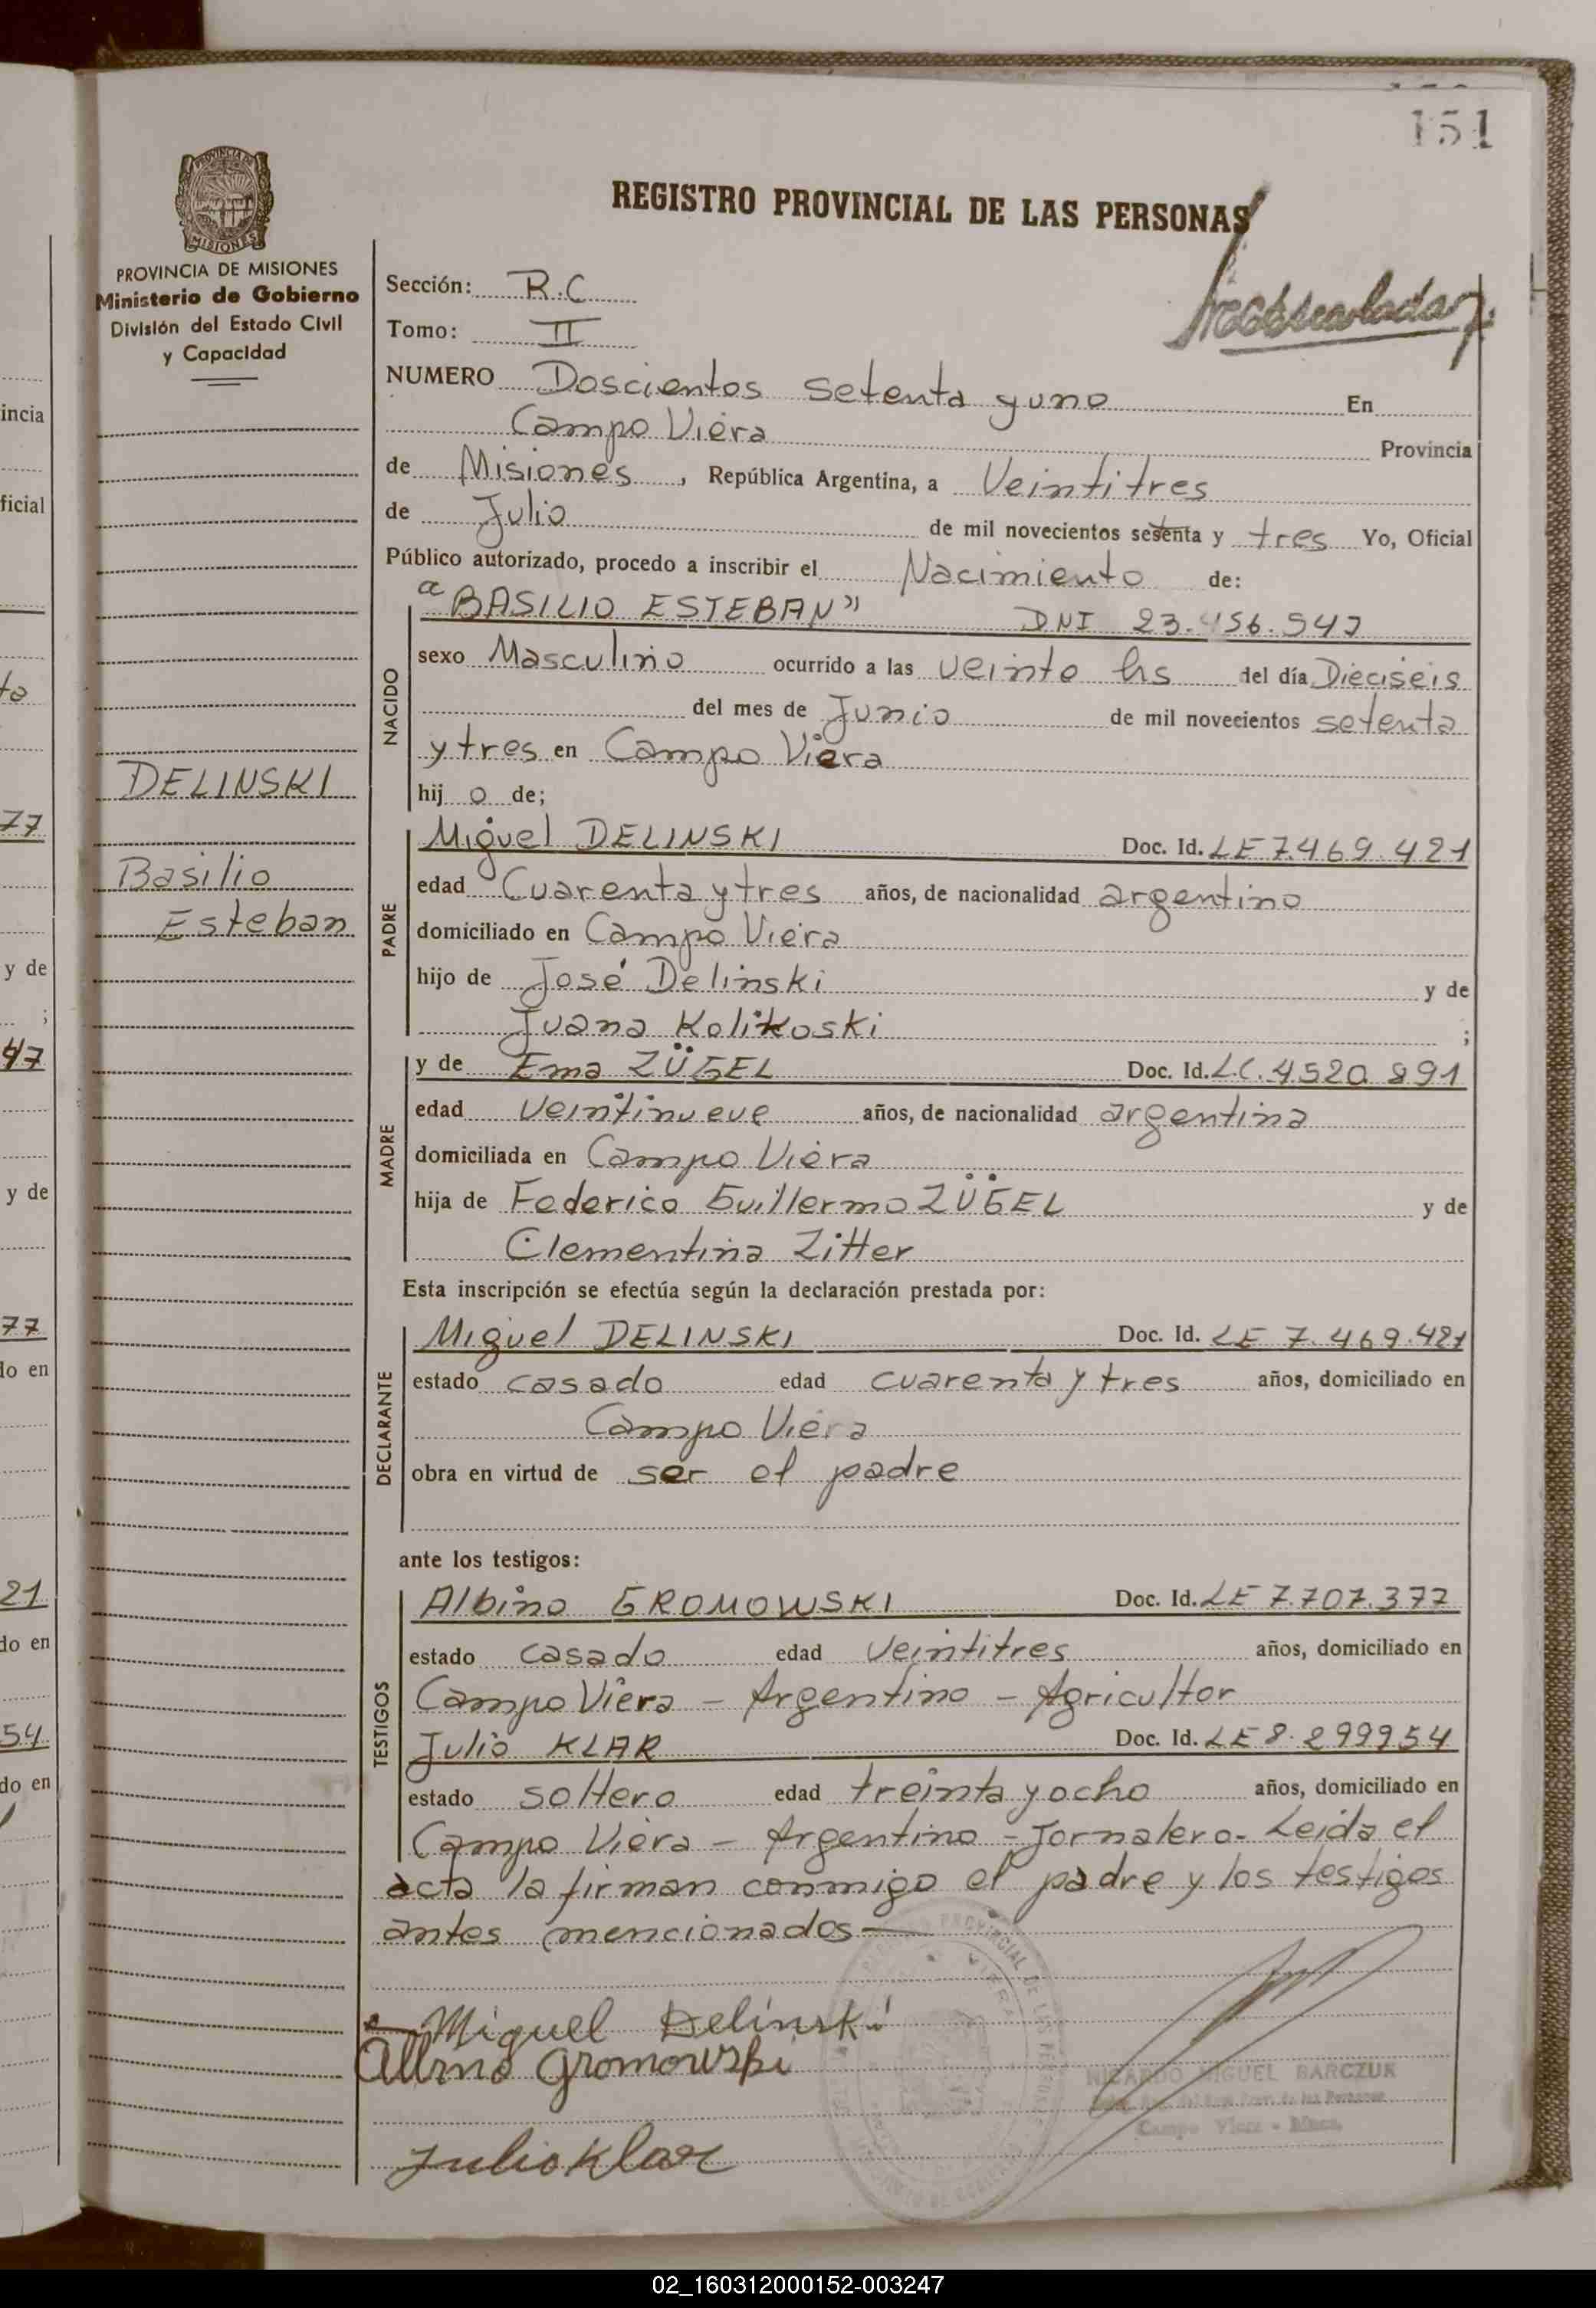 151
REGISTRO PROVINCIAL DE LAS PERSONAS
PROVINCIA DE MISIONES
Ministerio de Gobierno
División del Estado Civil
y Capacidad
Sección: R.C
Tomo: II
NUMERO Doscientos setenta y uno En
Campo Viera Provincia
de Misiones, República Argentina, a Veintitres
de Julio de mil novecientos setenta y tres Yo, Oficial
Público autorizado, procedo a inscribir el Nacimiento de:
"BASILIO ESTEBAN" DNI 23.456.947
NACIDO
sexo Masculino ocurrido a las veinte hs del día Dieciseis
del mes de Junio de mil novecientos setenta
y tres en Campo Viera
hij o de;
DELINSKI
Basilio
Esteban
PADRE
Miguel DELINSKI Doc. Id. LE 7.469.421
edad Cuarenta y tres años, de nacionalidad argentino
domiciliado en Campo Viera
hijo de José Delinski y de
Juana Kolikoski ;
MADRE
y de Ema ZÜGEL Doc. Id. L.C. 4520891
edad veintinueve años, de nacionalidad argentina
domiciliada en Campo Viera
hija de Federico Guillermo ZÜGEL y de
Clementina Zitter
Esta inscripción se efectúa según la declaración prestada por:
DECLARANTE
Miguel DELINSKI Doc. Id. LE 7.469.421
estado casado edad cuarenta y tres años, domiciliado en
Campo Viera
obra en virtud de ser el padre
ante los testigos:
TESTIGOS
Albino GROMOWSKI Doc. Id. LE 7.707.377
estado casado edad veintitres años, domiciliado en
Campo Viera - Argentino - Agricultor
Julio KLAR Doc. Id. LE 8.299954
estado soltero edad treinta y ocho años, domiciliado en
Campo Viera - Argentino - Jornalero - Leida el
acta la firman conmigo el padre y los testigos
antes mencionados
Miguel Delinski
Albino Gromowski
Julio Klar
MIGUEL BARCZUK
Campo Viera
02_160312000152-003247